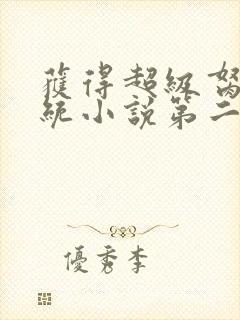 獲得超級
統小說第二
優秀李